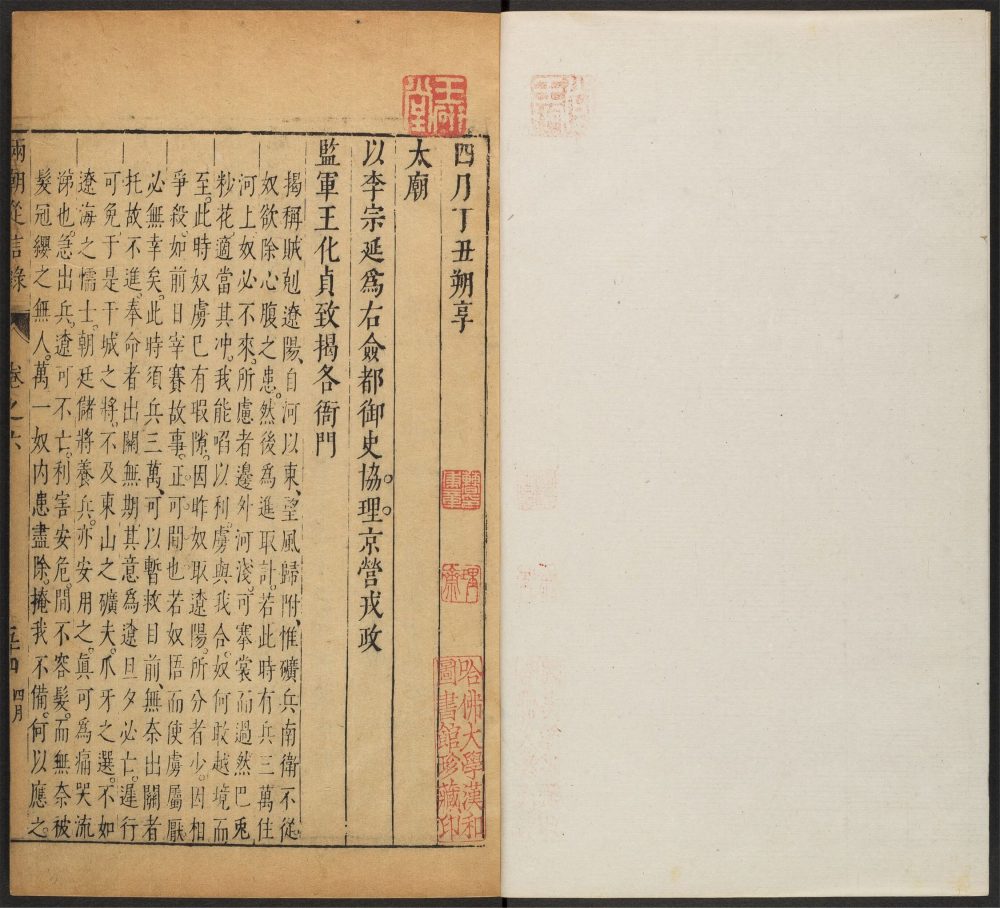 四月丁丑朔享
太廟
以李宗延爲右僉都御史協理京營戎政
監軍王化貞致揭各衙門
揭稱賊剋遼陽自河以東望風歸附惟礦兵南衛不從
奴欲除心腹之患然後爲進取計若此時有兵三萬住
河上奴必不來所慮者邊外河淺可褰裳而過然巴兎
炒花適當其冲我能啗以利虜與我合奴何敢越境而
至此時奴虜巳有瑕隙因昨奴取遼陽所分者少因相
爭殺如前日宰賽故事正可間也若奴悟而使虜屬厭
必無幸矣此時須兵三萬可以暫救目前無奈出關者
托故不進奉命者出關無期其意爲遼旦夕必亡遲行
可免于是干城之將不及東山之礦夫爪牙之選不如
遼海之懦士朝廷儲將養兵亦安用之眞可爲痛哭流
涕也急出兵遼可不亡利害安危間不容髮而無奈被
髮冠纓之無人萬一奴内患盡除掩我不備何以應之
兩朝從信錄
卷之六
四月
哈佛大學漢和
圖書館珍藏印